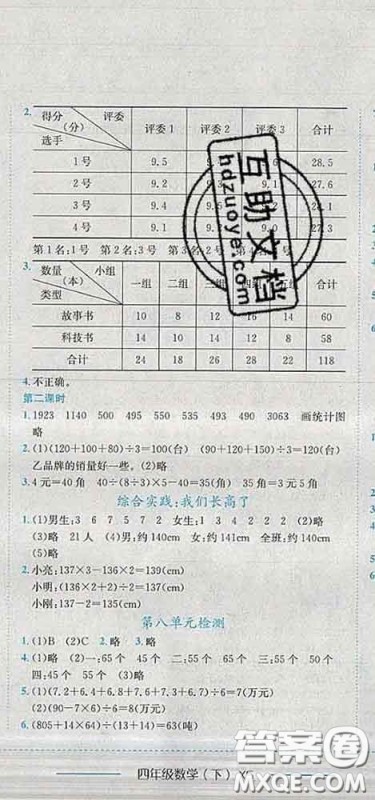 2. 得分(分) 评委 选手 评委1 评委2 评委3 合计
1号 9.5 28.5
2号 9.2 27.6
3号 9.1
4号 9.1 9.0 27.3
第1名:1号 第2名:3号
3. 数量(本) 小组 类型 一组 二组 合计
故事书 10 8 12 16 14 60
科技书 14 10 14 12 8 58
合计 24 18 26 28 22 118
4.不正确。
第二课时
1.1923 1140 500 495 550 535 493 490 3063 画统计图
略
2.(1)(120+100+80)÷3=100(台) (90+120+150)÷3=120(台)
乙品牌的销量好一些。(2)略
3.4元=40角 40÷(8÷1×5-40=35(角) 35角=3元5角
综合实践:我们长高了
1.(1)男生:3 6 7 5 7 2 女生:1 3 4 2 2 2 (2)略
(3)略 21人 (4)男生:约140cm 女生:约141cm 全班:约140cm
(5)略
2.小亮:137×3-136×2=139(cm)
小明:(136×2+2)÷2=137(cm)
小刚:137-2=135(cm)
第八单元检测
1.(1)B (2)C 2.略 3.略
4.(1)略 (2)一:65个 45个 二:55个 55个 三:65个 50个
四:45个 55个 (3)略
5.(1)(7.2+6.4+6.8+7.6+6.4+7.6)÷6=7(万元)
(2)(7×6+6)÷6=8(万元)
6.(805+14×64)÷(13+14)=63(吨)
四年级数学(下)
互助文档
hdzuoye.com
答案圈
MXQE.COM